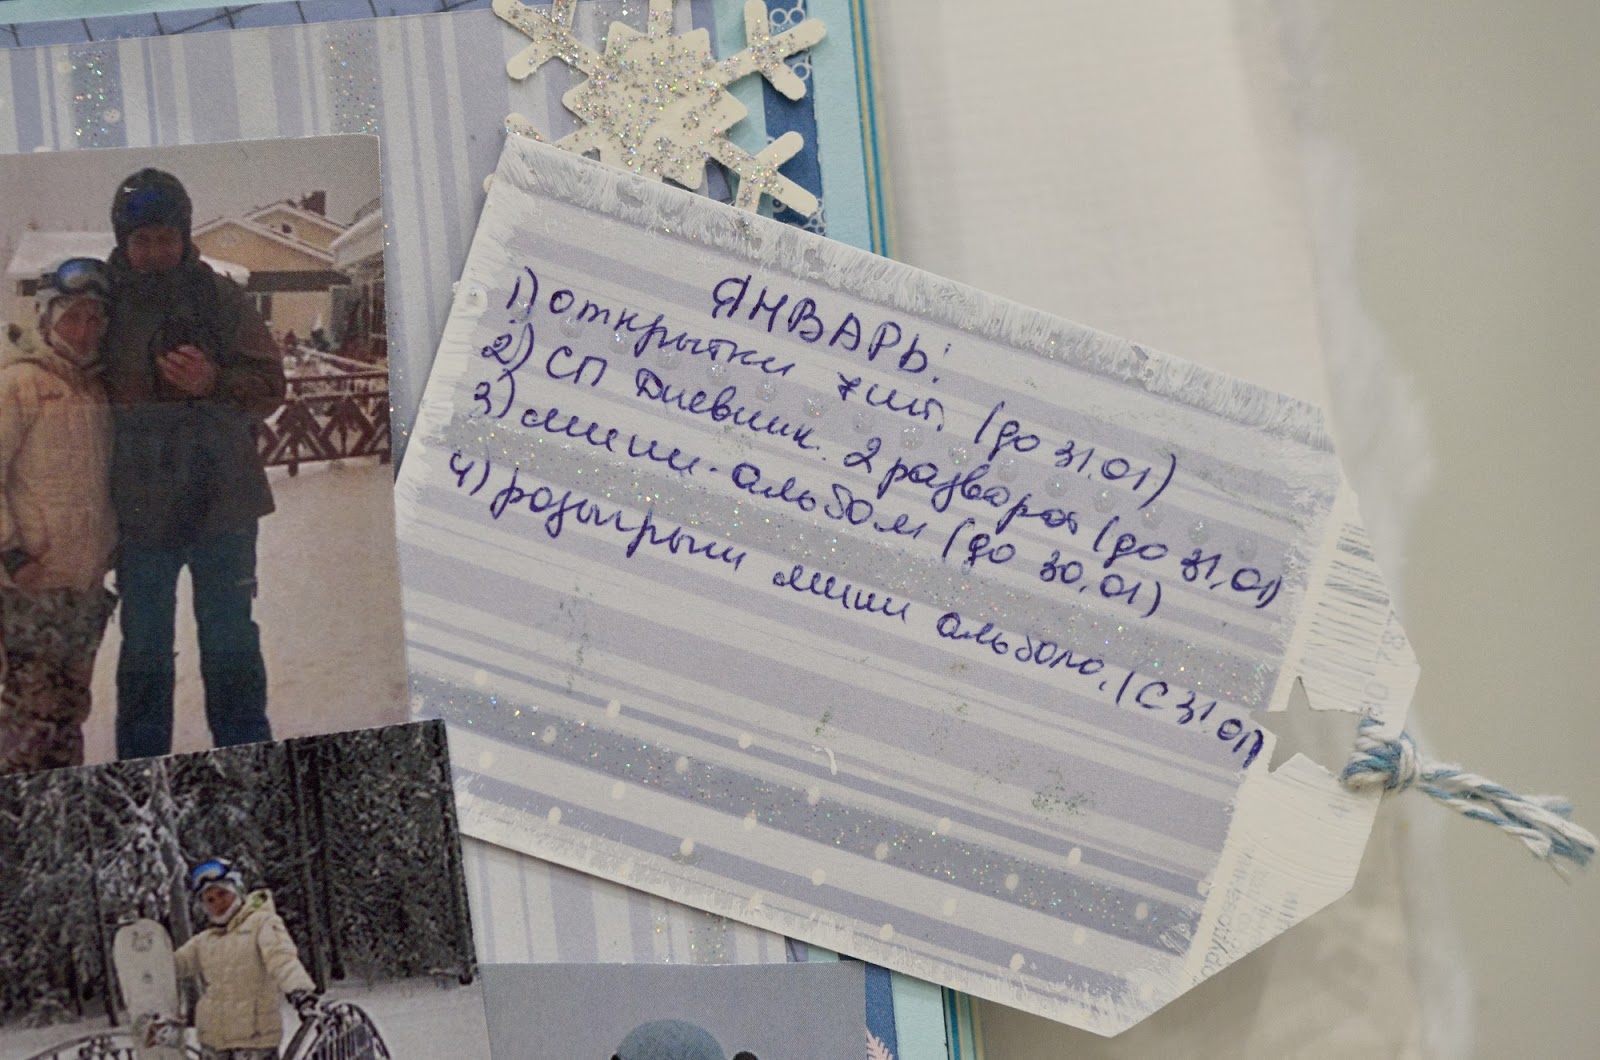 ЯНВАРЬ:
1) открытки 7шт. (до 31.01)
2) СП Дневник. 2 разворот (до 31.01)
3) мини-альбом (до 30.01)
4) розыгрыш мини альбома. (с 31.01)